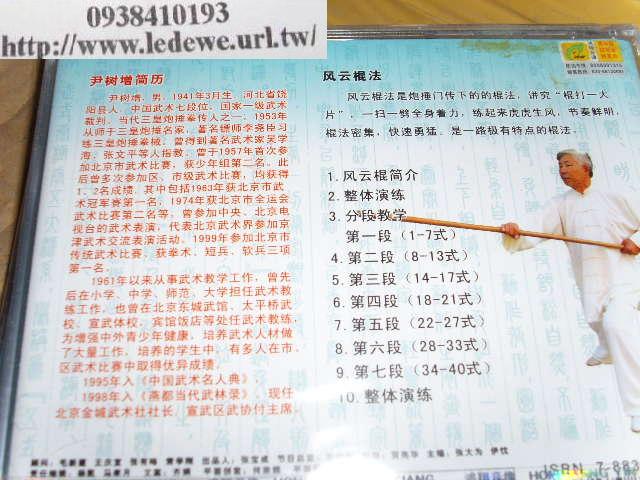 0938410193
http://www.ledewe.url.tw/
尹树增简历
尹树增，男，1941年3月生，河北省饶
阳县人，中国武术七段位，国家一级武术
裁判，当代三皇炮捶掌传人之一，1953年
从师于三皇炮捶名家，著名镖师李尧臣习
练三皇炮捶拳械，曾得到著名武术家吴学
海、张文平等人指教，曾于1957年首次参
加北京市武术比赛，获少年组第二名。此
后曾多次参加区、市级武术比赛，均获得
1、2名成绩，其中包括1963年获北京市武
术冠军赛第一名，1974年获北京市全运会
武术比赛第二名等，曾参加中央、北京电
视台的武术表演，代表北京武术界参加京
津武术交流表演活动，1999年参加北京市
传统武术比赛，获拳术、短兵、软兵三项
第一名。
1961年以来从事武术教学工作，曾先
后在小学、中学、师范、大学担任武术教
练工作，也曾在北京东城武馆、太平桥武
校、宣武体校、宾馆饭店等处任武术教练，
为增强中外青少年健康，培养武术人材做
了大量工作，培养的学生中，有多人在市、
区武术比赛中取得优异成绩。
1995年入《中国武术名人典》
1998年入《燕都当代武林录》，现任
北京金城武术社社长，宣武区武协付主席。
风云棍法
风云棍法是炮捶门传下的的棍法，讲究“棍打一大
片”，一扫一劈全身着力，练起来虎虎生风，节奏鲜明，
棍法密集，快速勇猛。是一路极有特点的棍法。
1. 风云棍简介
2. 整体演练
3. 分段教学
第一段（1-7式）
4. 第二段（8-13式）
5. 第三段（14-17式）
6. 第四段（18-21式）
7. 第五段（22-27式）
8. 第六段（28-33式）
9. 第七段（34-40式）
10. 整体演练
ISRN 7-883